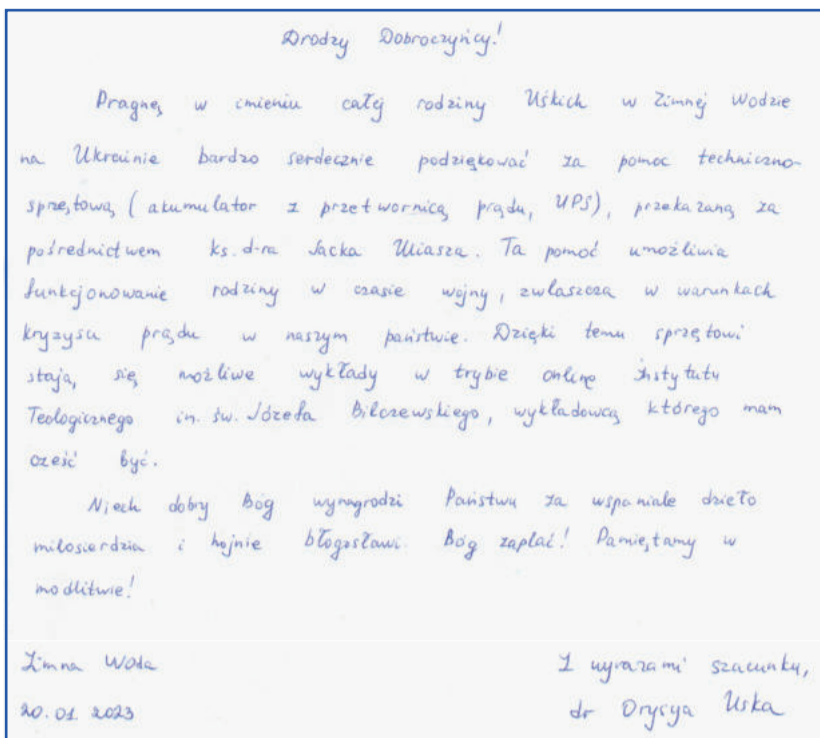 Drodzy Dobroczyńcy!
Pragnę w imieniu całej rodziny Uśkich w Zimnej Wodzie
na Ukrainie bardzo serdecznie podziękować za pomoc techniczno-
sprzętową (akumulator z przetwornicą prądu, UPS), przekazaną za
pośrednictwem ks. d-ra Jacka Uliasza. Ta pomoć umożliwia
funkcjonowanie rodziny w czasie wojny, zwłaszcza w warunkach
kryzysu prądu w naszym państwie. Dzięki temu sprzętowi
stają się możliwe wykłady w trybie online Instytutu
Teologicznego im. św. Józefa Bilczewskiego, wykładowcą którego mam
cześć być.
Niech dobry Bóg wynagrodzi Państwu za wspaniałe dzieło
miłosierdzia i hojnie błogosławi. Bóg zapłać! Pamiętamy w
modlitwie!
Zimna Woda
20.01.2023
Z wyrazami szacunku,
dr Orysya Uska